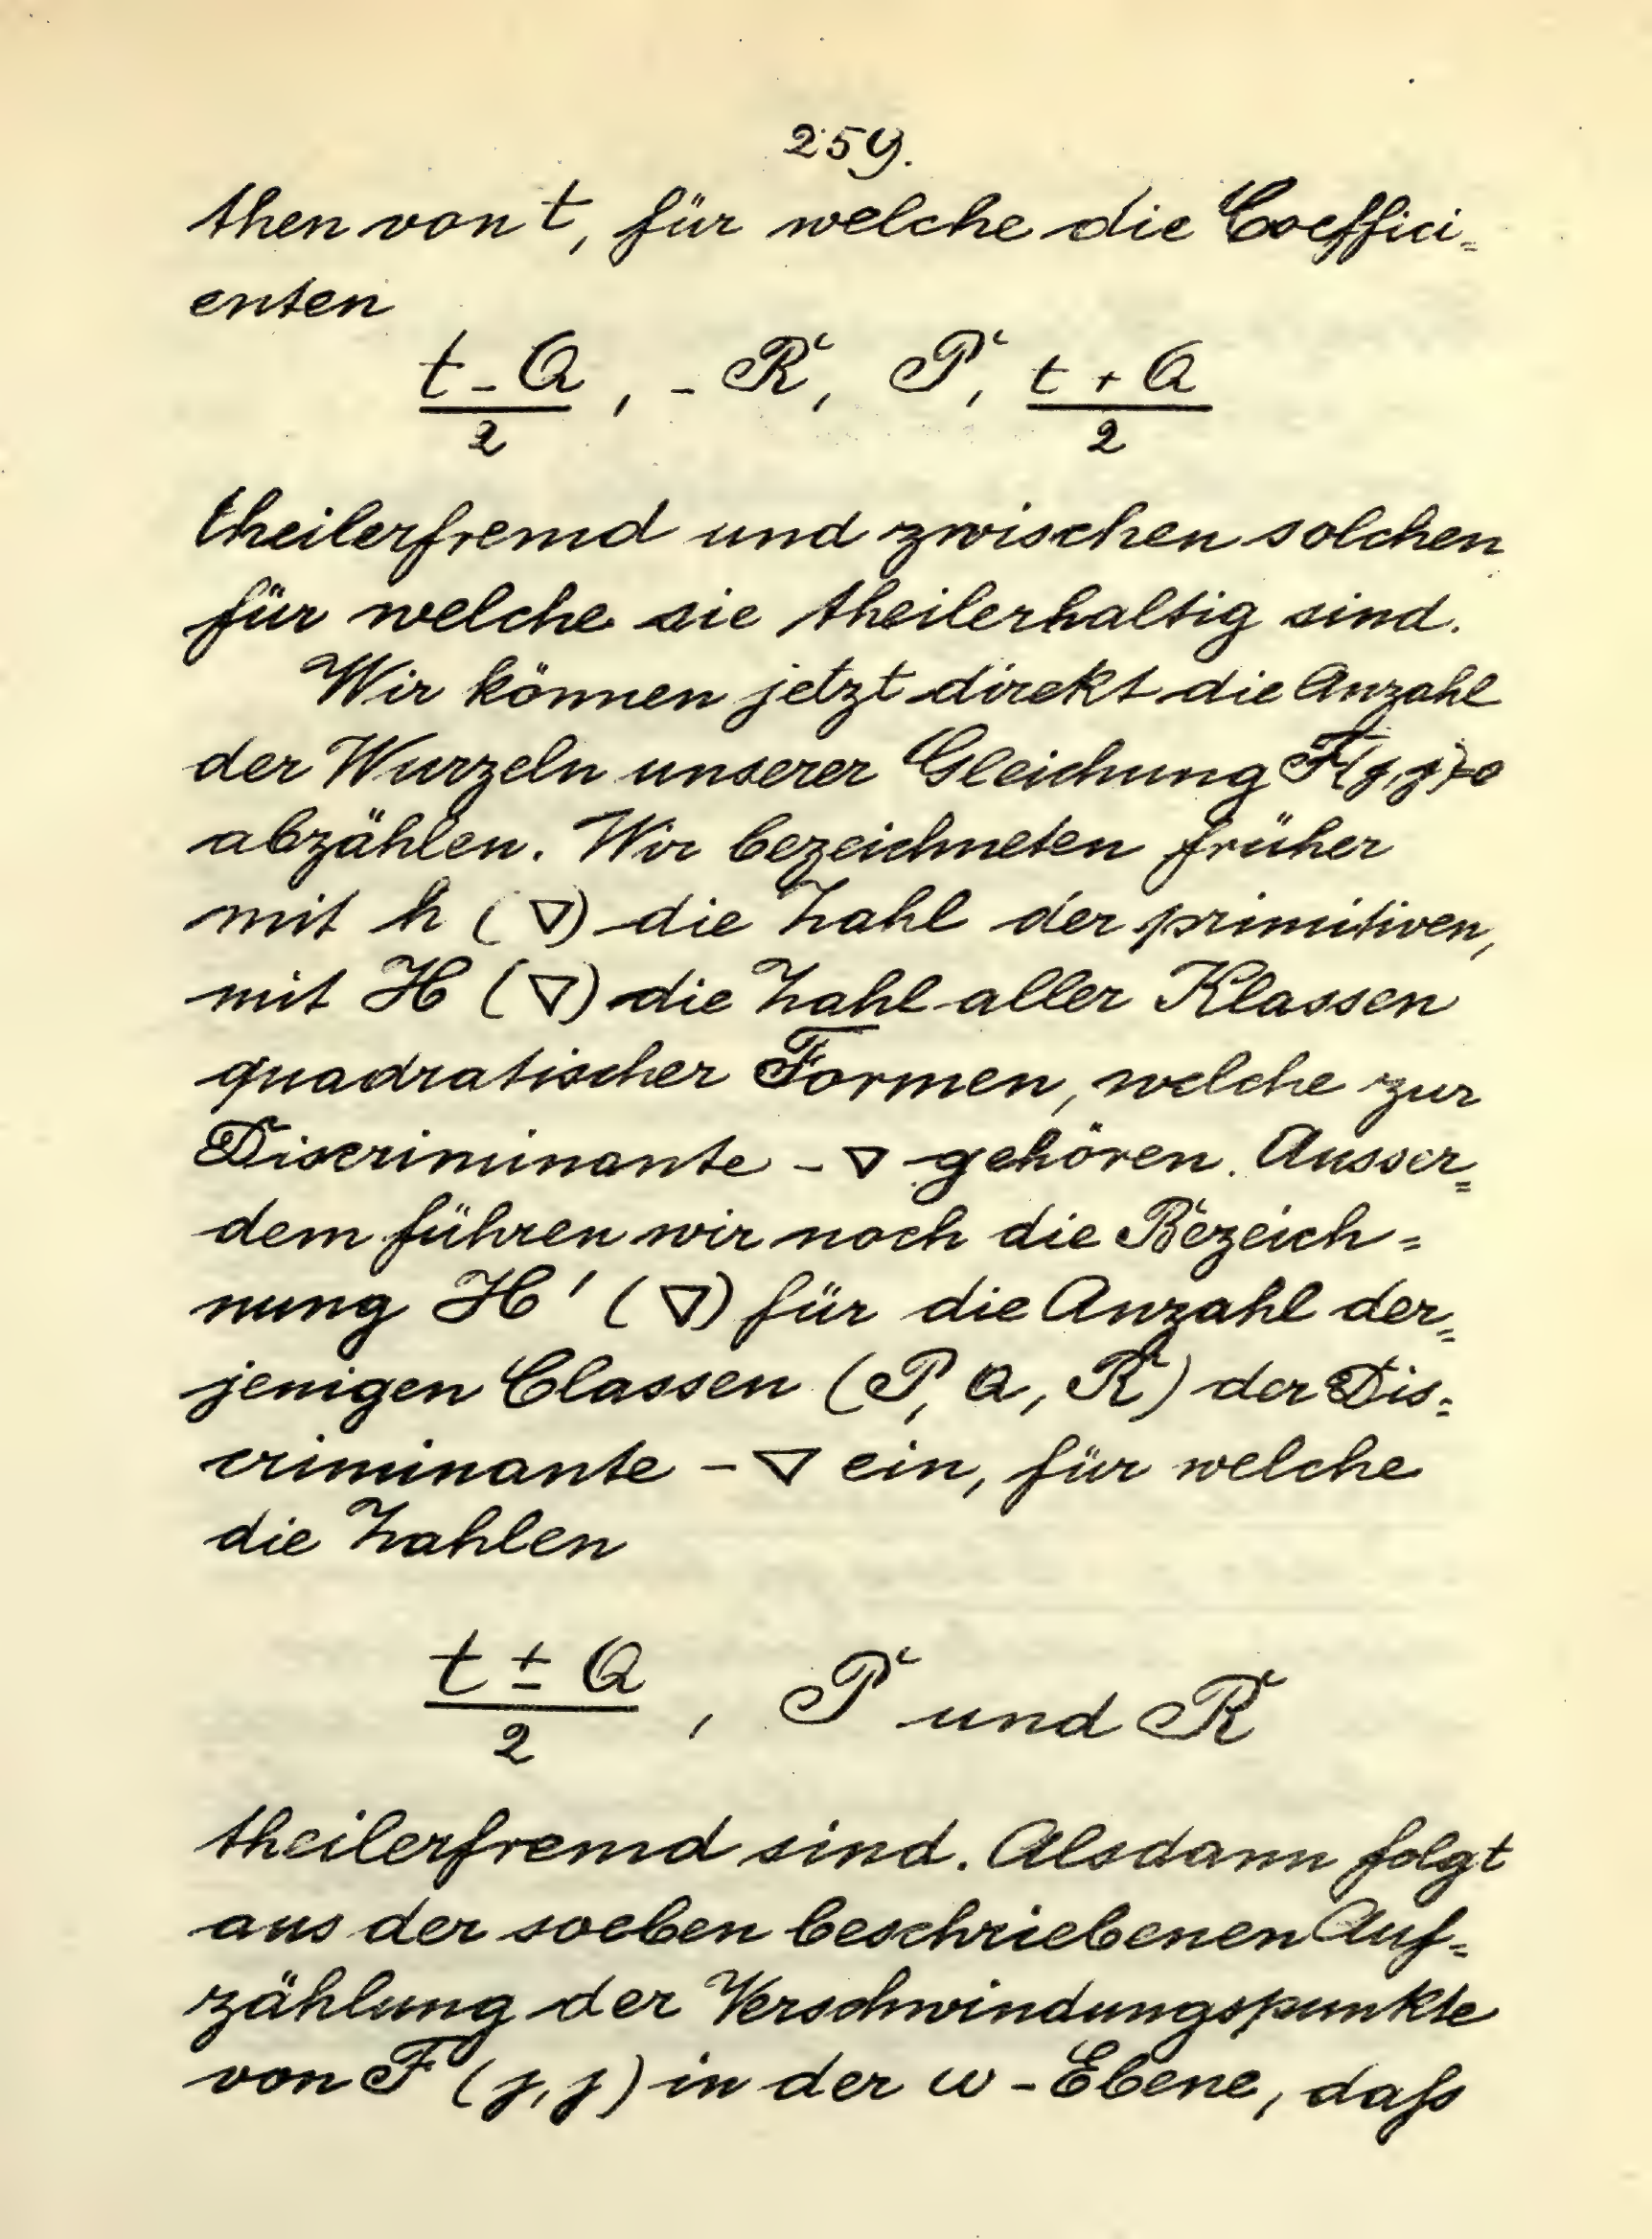 259.
then von t, für welche die Coeffici=
enten
t - Q / 2, - R, P, t + Q / 2
theilerfremd und zwischen solchen
für welche sie theilerhaltig sind.
Wir können jetzt direkt die Anzahl
der Wurzeln unserer Gleichung F(j,j)=0
abzählen. Wir bezeichneten früher
mit h (∇) die Zahl der primitiven,
mit H (∇) die Zahl aller Klassen
quadratischer Formen, welche zur
Discriminante -∇ gehören. Ausser=
dem führen wir noch die Bezeich=
nung H' (∇) für die Anzahl der=
jenigen Classen (P, Q, R) der Dis=
criminante -∇ ein, für welche
die Zahlen
t ± Q / 2, P und R
theilerfremd sind. Alsdann folgt
aus der soeben beschriebenen Auf=
zählung der Verschwindungspunkte
von F (j, j) in der ω-Ebene, daſs